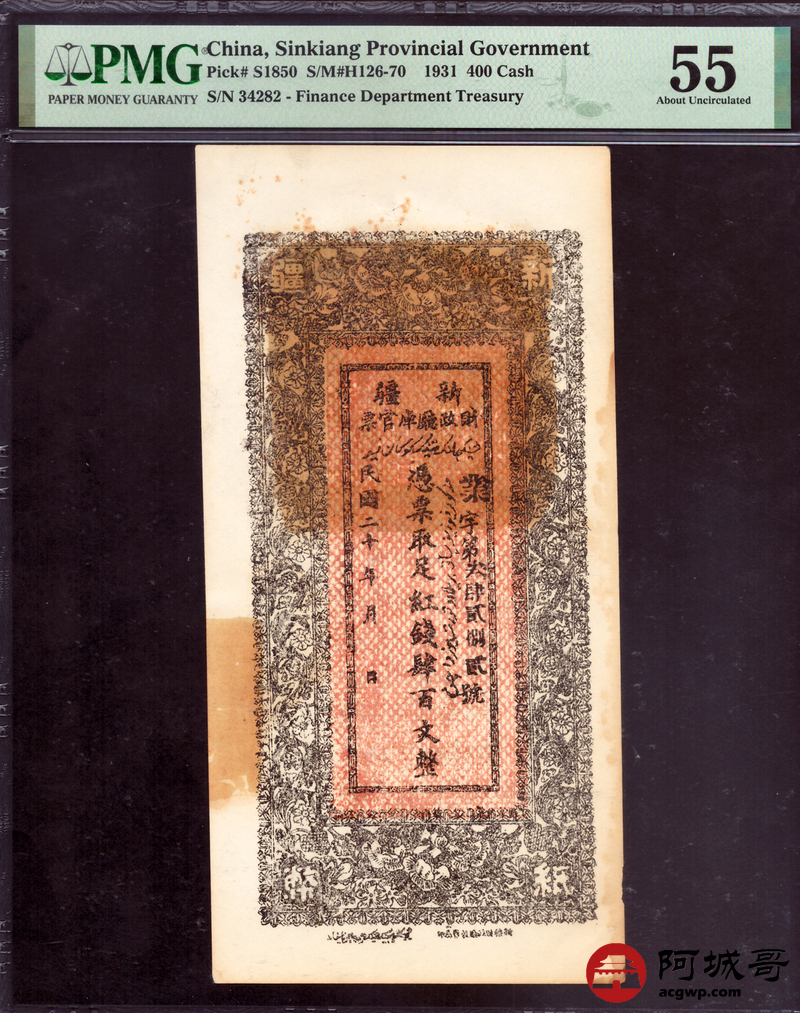 PMG
PAPER MONEY GUARANTY
China, Sinkiang Provincial Government
Pick# S1850 S/M#H126-70 1931 400 Cash
S/N 34282 - Finance Department Treasury
55
About Uncirculated
新疆
新疆
財政廳庫官票
字第 肆貳捌貳號
憑票取足紅錢肆百文整
民國二十年 月 日
紙幣
阿城哥
acgwp.com